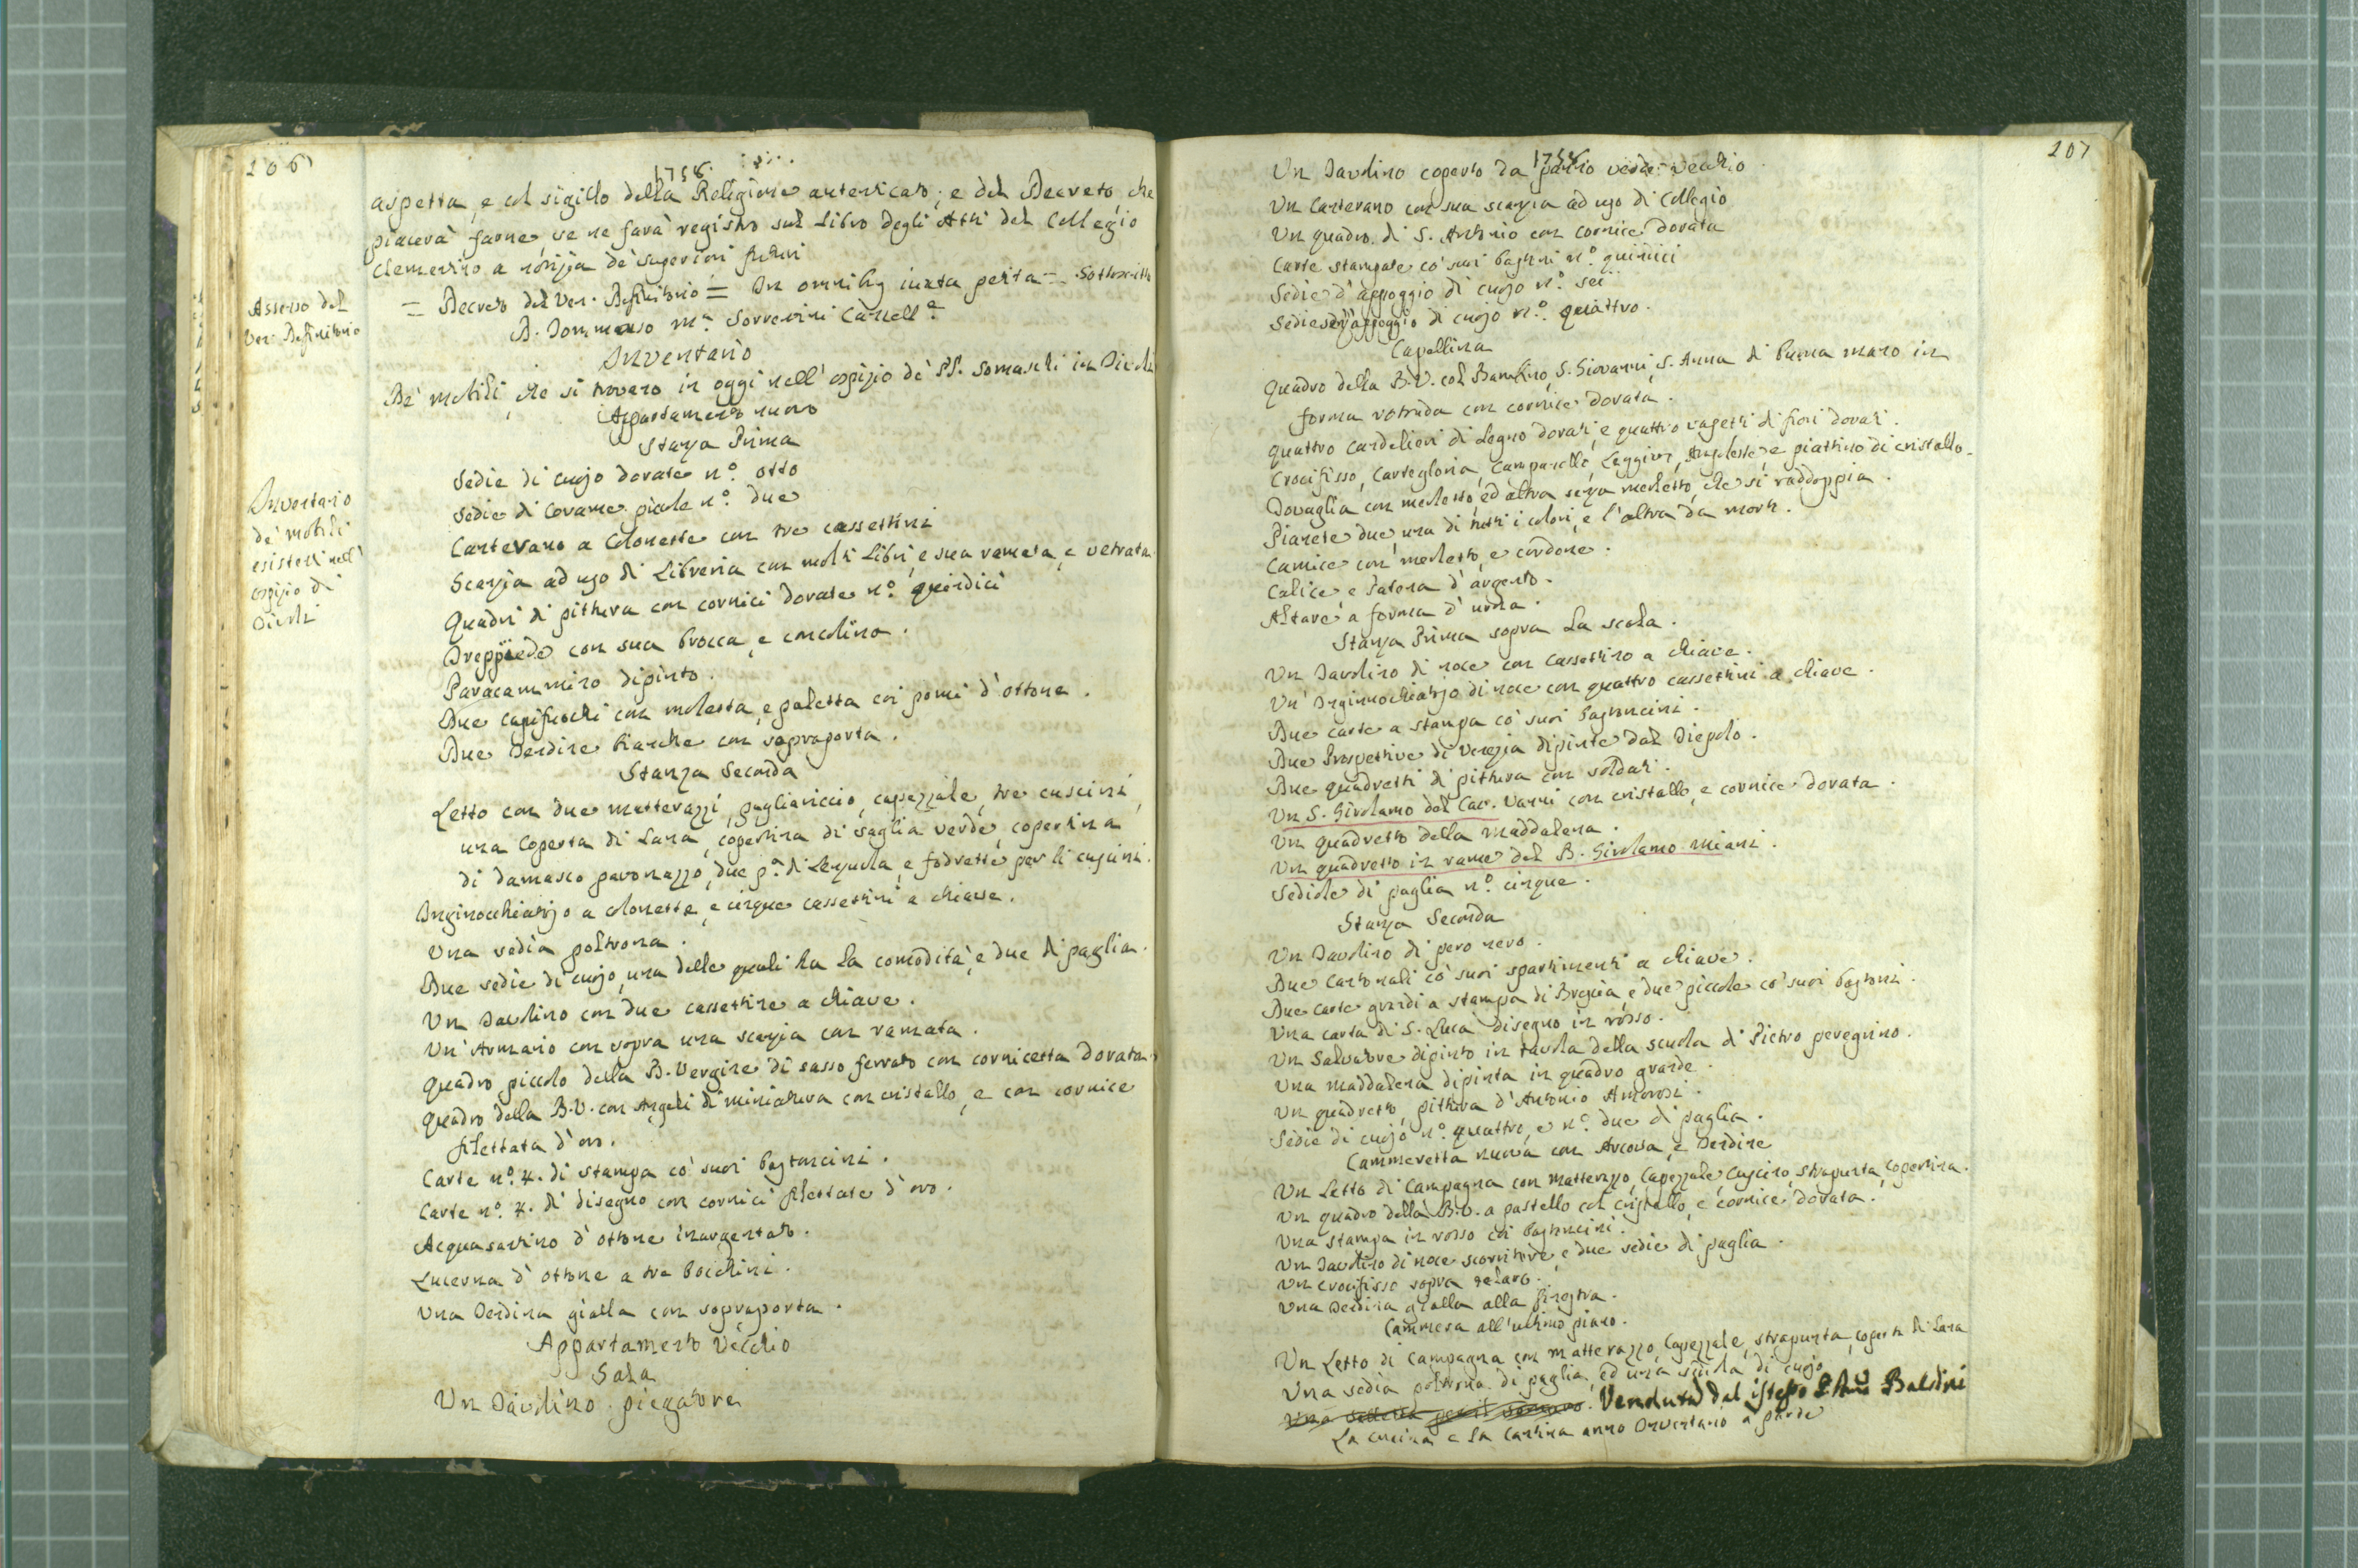 206
1756.
aspetta, e col sigillo della Religione autenticato; e del Decreto, che
piacerà farne se ne farà registro sul Libro degli Atti del Collegio
Clementino a notizia de' superiori futuri
Assenso del
Ven. Definitorio
= Decreto del Ven. Definitorio = In omnibus iuxta petita = Sottoscritto
D. Tommaso Mª Sorrentini Cancellº
Inventario
De' mobili, che si trovano in oggi nell'ospizio de' PP. Somaschi in Tivoli
Appartamento nuovo
Stanza Prima
Inventario
de' mobili
esistenti nell'
ospizio di
Tivoli
Sedie di cuojo dorate nº. otto
Sedie di Corame picole nº. due
Canterano a Colonette con tre cassettini
Scanzia ad uso di Libreria con molti Libri, e sua ramata, e vetrata
Quadri di pittura con cornici dorate nº. quindici
Treppiede con sua brocca, e concolina.
Paracammino dipinto.
Due capifuochi con moletta, e paletta coi pomi d'ottone.
Due Tendine bianche con sopraporta.
Stanza Seconda
Letto con due matterazzi, pagliariccio, capezzale, tre cuscini,
una Coperta di Lana, copertina di saglia verde, copertina
di damasco pavonazzo, due pª. di Lenzuola, e fodrette per li cuscini.
Inginocchiatojo a colonette, e cinque cassettini a chiave.
Una sedia poltrona.
Due sedie di cuojo, una delle quali ha la comodità, e due di paglia.
Un Tavolino con due cassettine a chiave.
Un' Armario con sopra una scanzia con ramata.
Quadro piccolo della B. Vergine di sasso ferrato con cornicetta dorata.
Quadro della B.V. con Angeli di miniatura con cristallo, e con cornice
filettata d'oro.
Carte nº. 4. di stampa co' suoi bastoncini.
Carte nº. 4. di disegno con cornici filettate d'oro.
Acquasantino d'ottone inargentato.
Lucerna d'ottone a tre bocchini.
Una Tendina gialla con sopraporta.
Appartamento Vecchio
Sala
Un Tavolino piegatore
207
1756
Un Tavolino coperto da panno verde vecchio
Un Canterano con sua scanzia ad uso di Collegio
Un quadro di S. Antonio con cornice dorata
Carte stampate co' suoi bastoni nº. quindici
Sedie d'appoggio di cuojo nº. sei
Sedie senz'appoggio di cuojo nº. quattro.
Capellina
Quadro della B.V. col Bambino, S. Giovanni, S. Anna di buona mano in
forma rotonda con cornice dorata.
Quattro candelieri di Legno dorati, e quattro vasetti di fiori dorati.
Crocifisso, Cartegloria, Campanello, Leggivo, Ampolette, e piattino di cristallo.
Tovaglia con merletto, ed altra senza merletto, che si raddoppia.
Pianete due, una di tutti i colori, e l'altra da morti.
Camice con merletto, e cordone.
Calice e Patena d'argento.
Altare a forma d'urna.
Stanza Prima sopra la scala.
Un Tavolino di noce con cassettino a chiave.
Un' Inginocchiatojo di noce con quattro cassettini a chiave.
Due carte a stampa co' suoi bastoncini.
Due Prospettive di Venezia dipinte dal Tiepolo.
Due quadretti di pittura con soldati.
Un S. Girolamo del Cav. Vanni con cristallo, e cornice dorata.
Un quadretto della Maddalena.
Un quadretto in rame del B. Girolamo Miani.
Sediole di paglia nº. cinque.
Stanza Seconda
Un Tavolino di pero nero.
Due Cantonali co' suoi spartimenti a chiave.
Due carte grandi a stampa di Brescia, e due piccole co' suoi bastoni.
Una carta di S. Luca disegno in rosso.
Un Salvatore dipinto in tavola della scuola di Pietro peregrino.
Una Maddalena dipinta in quadro grande.
Un quadretto, pittura d'Antonio Amorosi.
Sedie di cuojo nº. quattro, e nº. due di paglia.
Cammeretta nuova con Arcova, e Tendine
Un Letto di Campagna con matterazzo, Capezzale, Cuscino, strapunta, Copertina.
Un quadro della B.V. a pastello col cristallo, e cornice dorata.
Una stampa in rosso coi bastoncini.
Un Tavolino di noce scornitore, e due sedie di paglia.
Un crocifisso sopra
Una Tendina gialla alla finestra.
Cammera all'ultimo piano.
Un Letto di Campagna con matterazzo, Capezzale, strapunta, coperta di Lana
Una sedia poltrona di paglia, ed una sediola di cuojo
Una Venduta dal istesso P. Baldini
La cucina e la Cantina anno Inventario a parte